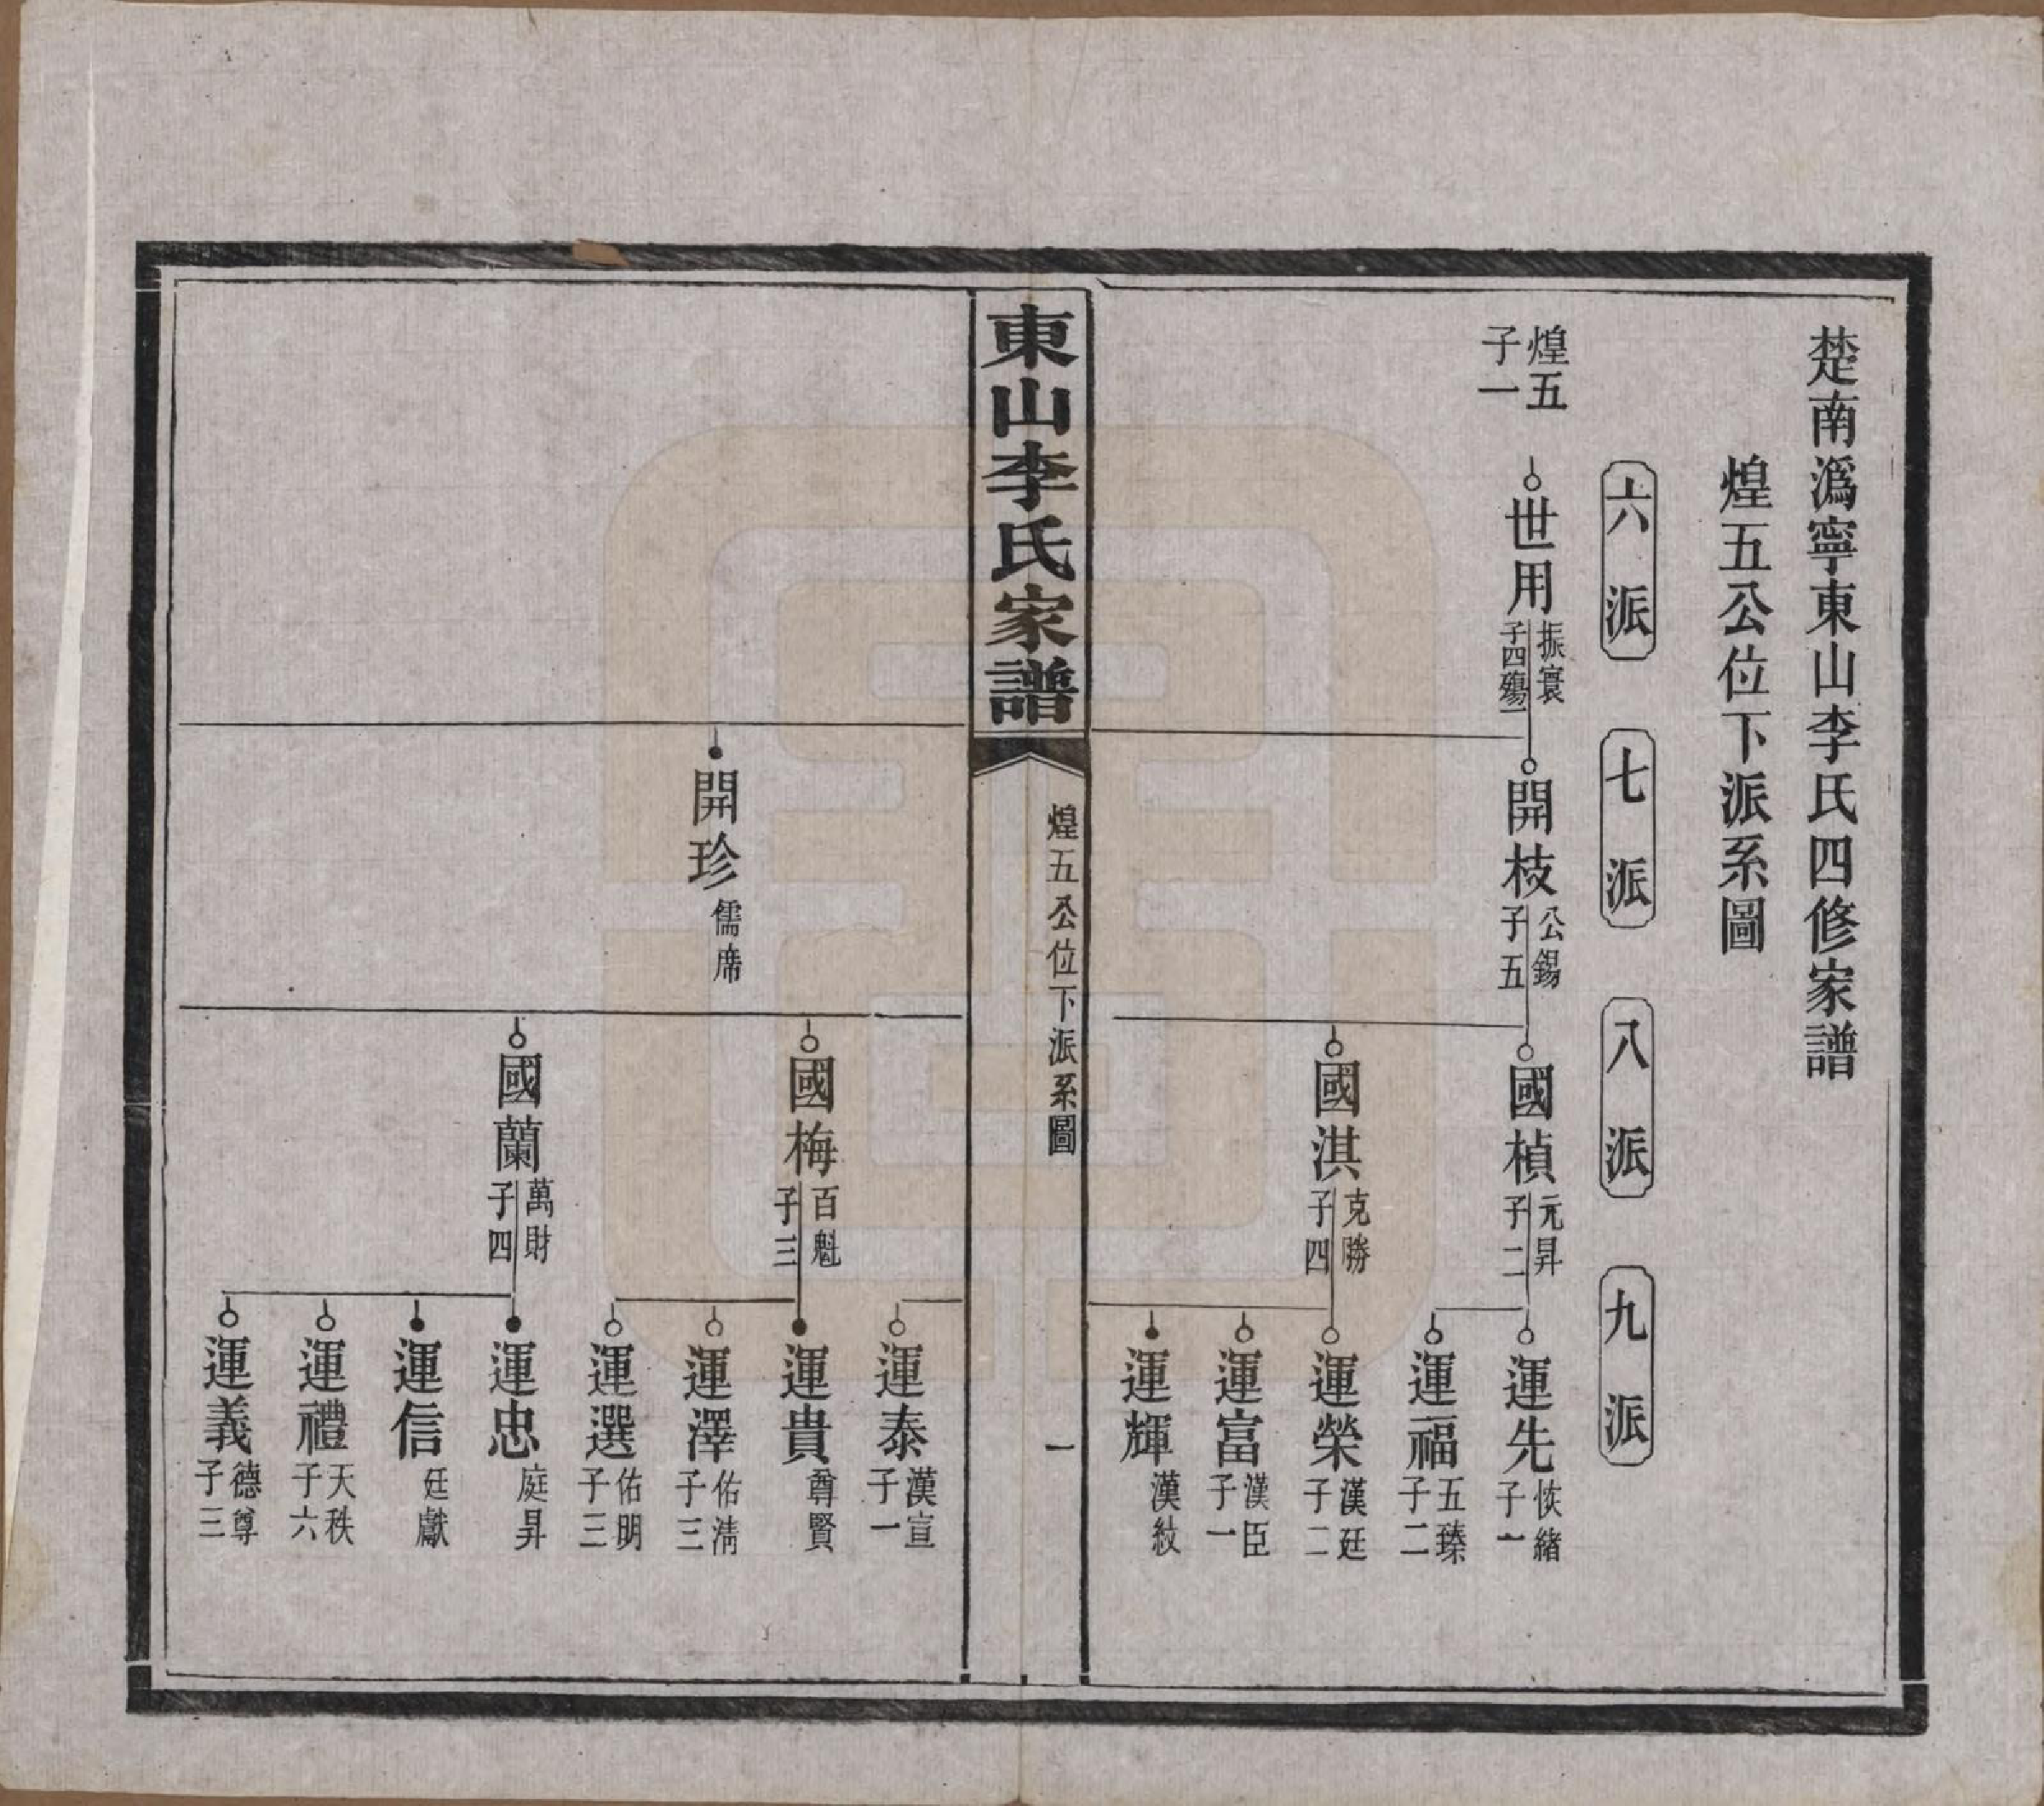 楚南溈寧東山李氏四修家譜
煌五公位下派系圖
六派
七派
八派
九派
煌五
子一
世用
振寰
子四殤一
開枝
公錫
子五
國楨
元昇
子二
運先
恢緒
子一
運福
五臻
子二
國淇
克勝
子四
運榮
漢廷
子二
運富
漢臣
子一
運輝
漢紋
東山李氏家譜
煌五公位下派系圖
一
運泰
漢宣
子一
國梅
百魁
子三
運貴
尊賢
運澤
佑淸
子三
運選
佑明
子三
開珍
儒席
國蘭
萬財
子四
運忠
庭昇
運信
廷獻
運禮
天秩
子六
運義
德尊
子三